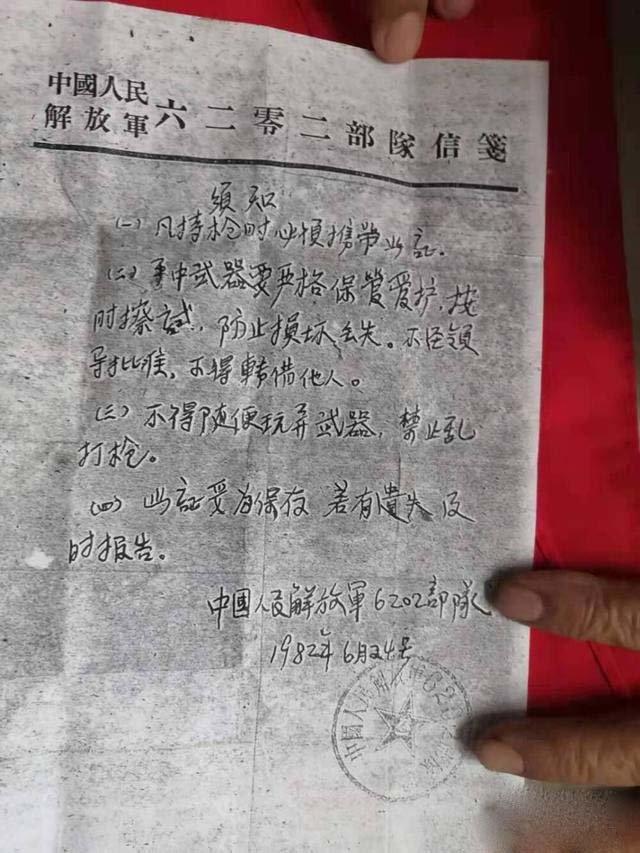 中國人民
解放軍六二零二部隊信箋
須知
(一) 凡持枪时必須携带此証。
(二) 手中武器要严格保管爱护，按
时擦拭，防止损坏丢失。不经领
导批准，不得轉借他人。
(三) 不得随便玩弄武器，禁止乱
打枪。
(四) 此証要为保存 若有遺失 及
时报告。
中國人民解放軍6202部隊
1982年6月24号
中國人民解放軍